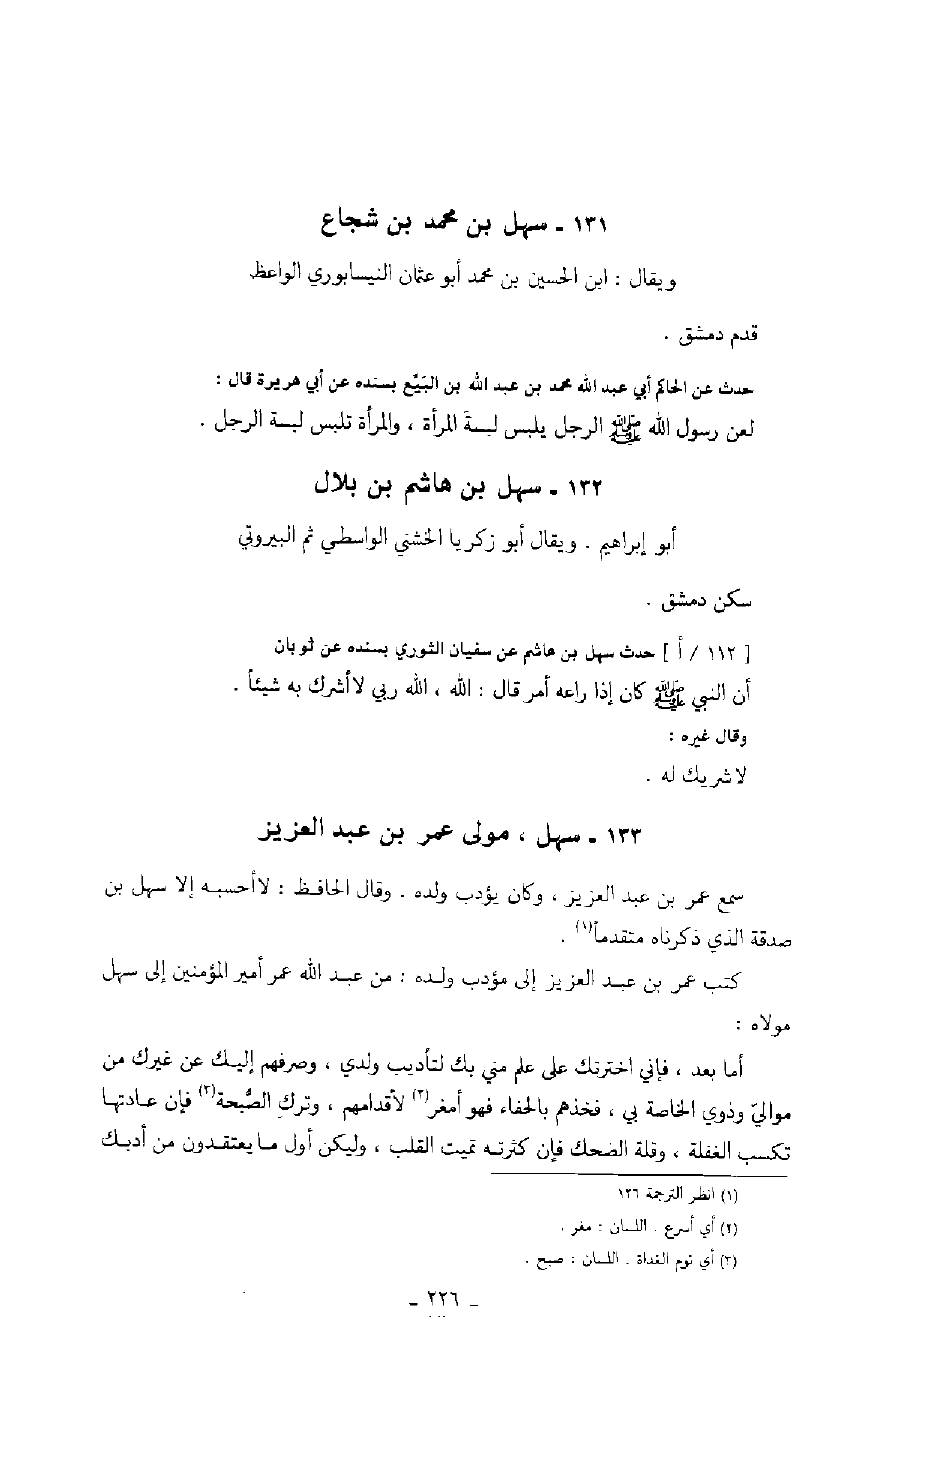 ١٣١ ـ سهل بن محمد بن شجاع
ويقال : ابن الحسين بن محمد أبو عثمان النيسابوري الواعظ
قدم دمشق .
حدث عن الحاكم أبي عبد الله محمد بن عبد الله بن البَيِّع بسنده عن أبي هريرة قال :
لعن رسول الله ﷺ الرجل يلبس لبسةَ المرأة ، والمرأة تلبس لبسة الرجل .
١٣٢ ـ سهل بن هاشم بن بلال
أبو إبراهيم . ويقال أبو زكريا الخشني الواسطي ثم البيروتي
سكن دمشق .
[ ١١٢ / أ ] حدث سهل بن هاشم عن سفيان الثوري بسنده عن ثوبان
أن النبي ﷺ كان إذا راعه أمر قال : الله ، الله ربي لا أشرك به شيئاً .
وقال غيره :
لا شريك له .
١٣٣ ـ سهل ، مولى عمر بن عبد العزيز
سمع عمر بن عبد العزيز ، وكان يؤدب ولده . وقال الحافظ : لا أحسبه إلا سهل بن
صدقة الذي ذكرناه متقدماً(١) .
كتب عمر بن عبد العزيز إلى مؤدب ولده : من عبد الله عمر أمير المؤمنين إلى سهل
مولاه :
أما بعد ، فإني اخترتك على علم مني بك لتأديب ولدي ، وصرفهم إليك عن غيرك من
مواليّ وذوي الخاصة بي ، فخذهم بالجفاء فهو أمغر(٢) لأقدامهم ، وتركِ الصُّبحة(٣) فإن عادتها
تكسب الغفلة ، وقلة الضحك فإن كثرته تميت القلب ، وليكن أول ما يعتقدون من أدبك
(١) انظر الترجمة ١٢٦
(٢) أي أسرع . اللسان : مغر .
(٣) أي نوم الغداة . اللسان : صبح .
ـ ٢٢٦ ـ